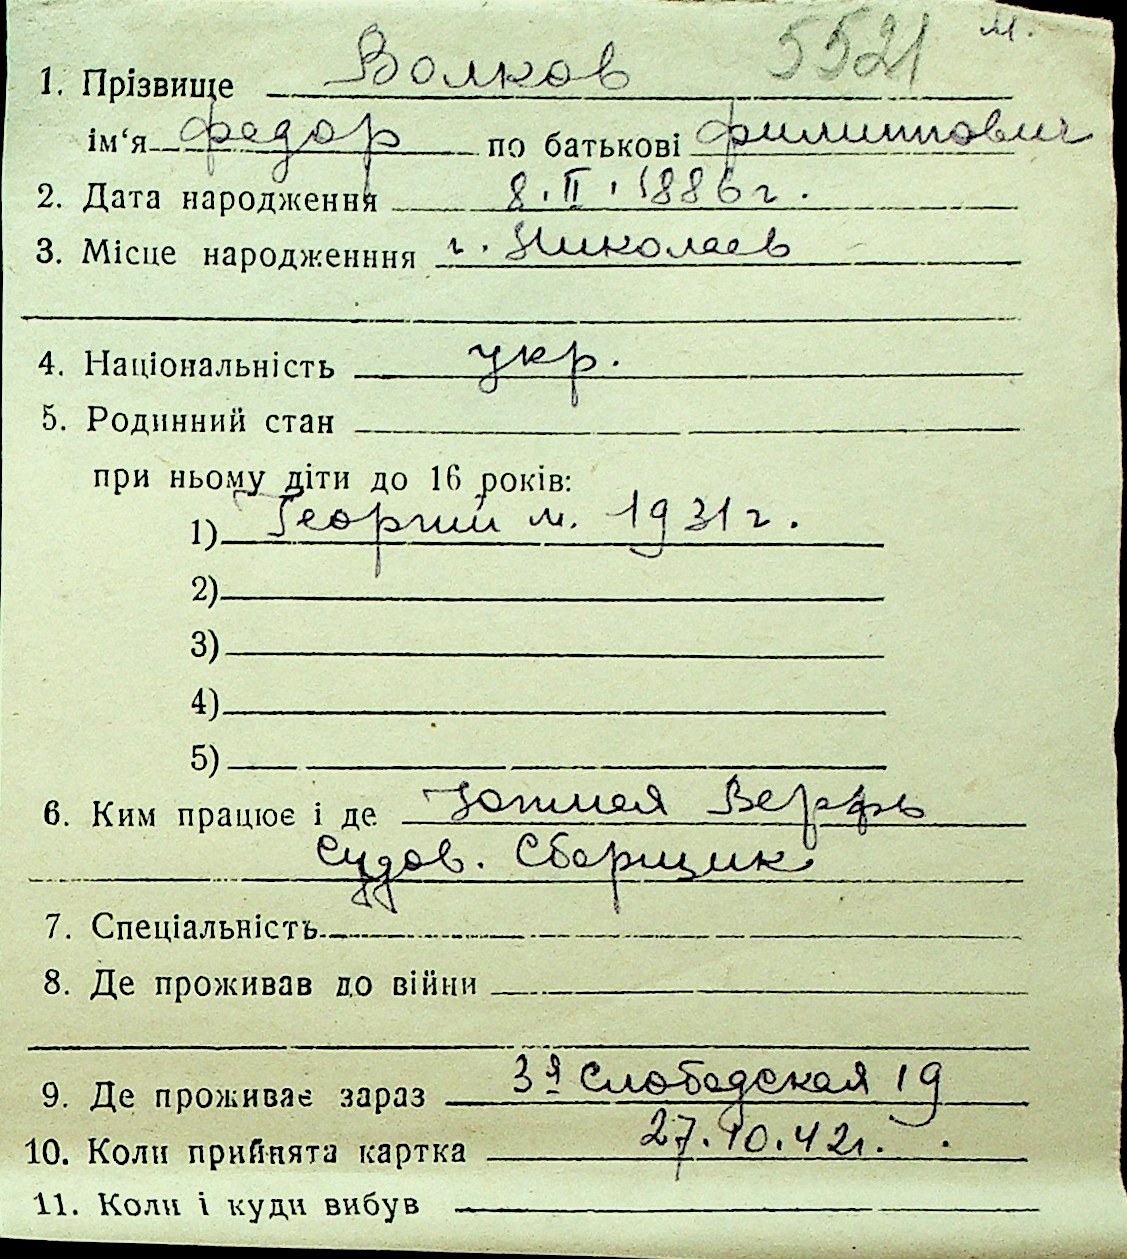 5521 м.
1. Прізвище Волков
ім‘я Федор по батькові Филиппович
2. Дата народження 8.II.1886г.
3. Місце народженння г. Николаев
4. Національність укр.
5. Родинний стан
при ньому діти до 16 років:
1) Георгий м. 1931г.
2)
3)
4)
5)
6. Ким працює і де Южная Верфь
Судов. Сборщик
7. Спеціальність
8. Де проживав до війни
9. Де проживає зараз 3я Слободская 19
10. Коли прийнята картка 27.10.42г.
11. Коли і куди вибув